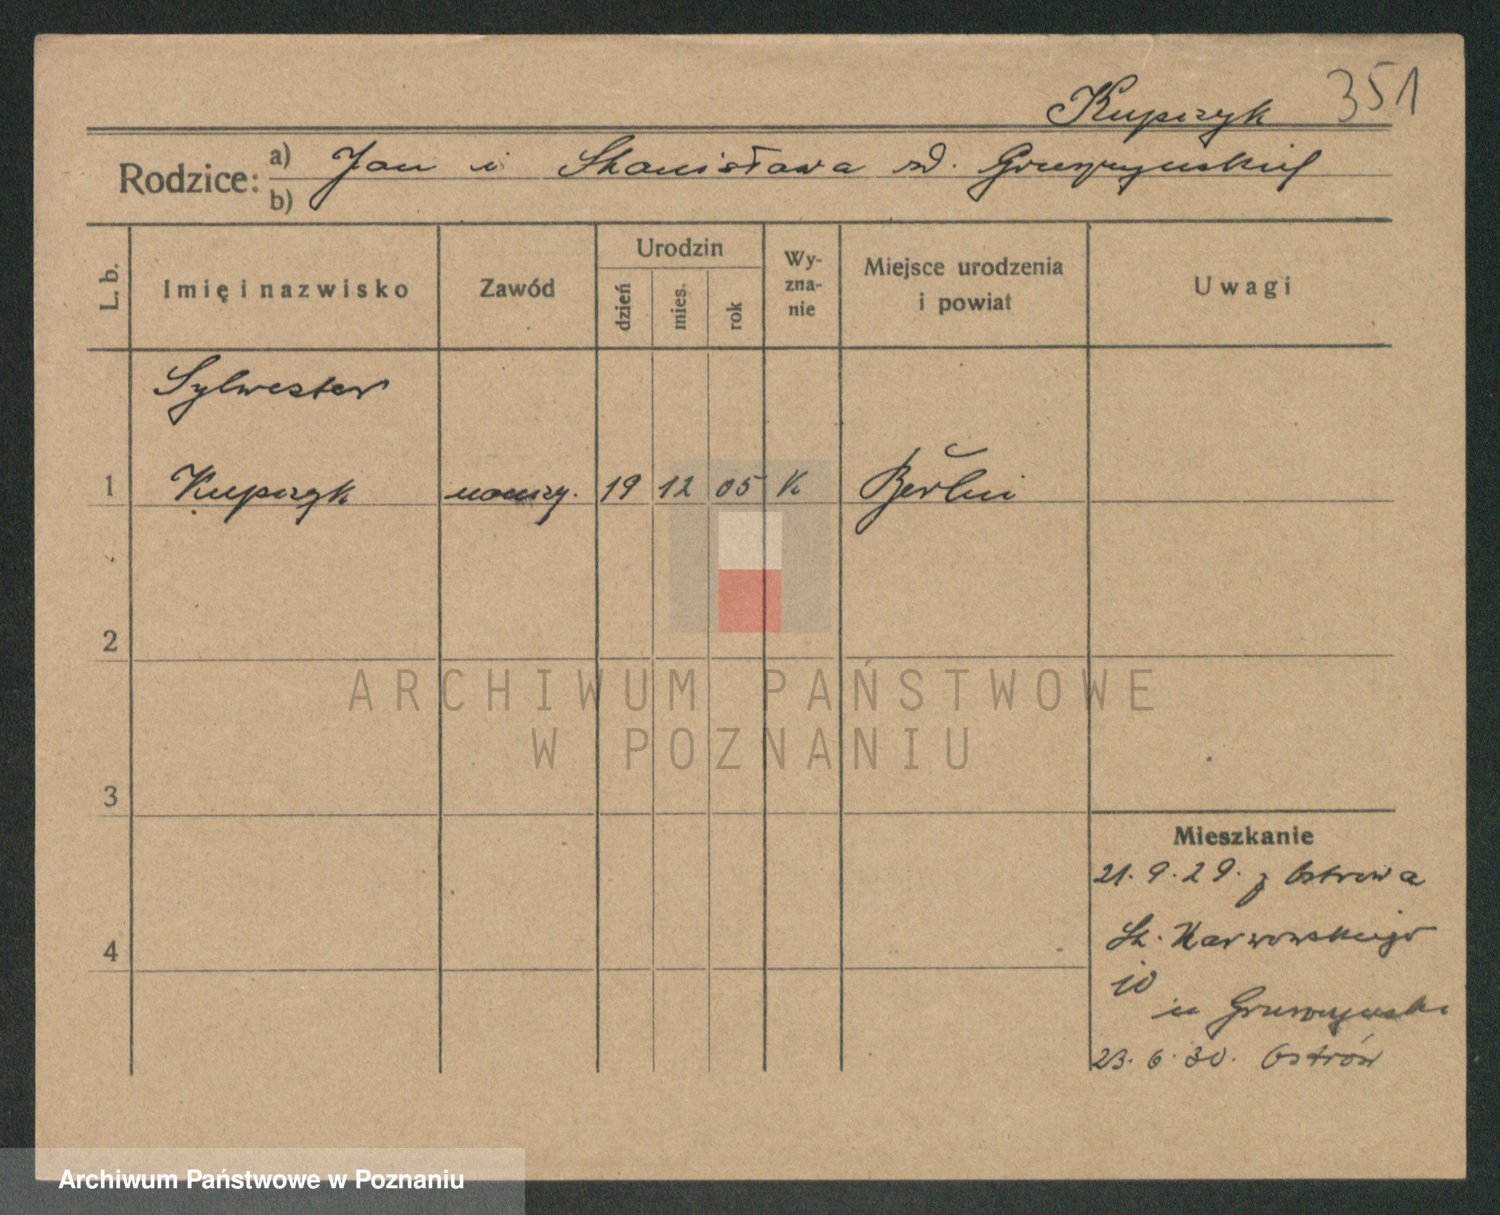 Kupczyk 351
Rodzice: a) Jan i Stanisława zd. Gruszczyńskich
b)
L. b.
Imię i nazwisko
Zawód
Urodzin
dzień
mies.
rok
Wy-
zna-
nie
Miejsce urodzenia
i powiat
Uwagi
Sylwester
1 Kupczyk naucz. 19 12 05 K Berlin
2
3
4
Mieszkanie
21. 9. 29. z Ostrowa
St. Karwowskiego
10
u
23. 6. 30. Ostrów
ARCHIWUM PAŃSTWOWE
W POZNANIU
Archiwum Państwowe w Poznaniu